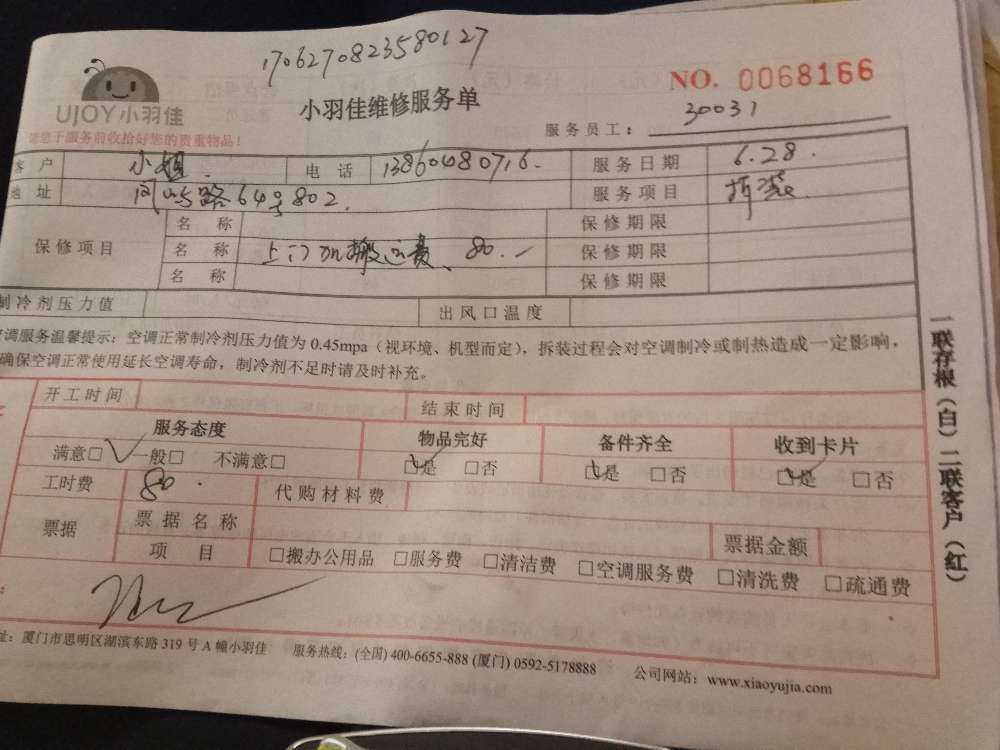 1706270823580127
NO. 0068166
UJOY小羽佳
小羽佳维修服务单
服务员工: 30031
请您于服务前收拾好您的贵重物品!
客户 小姐. 电话 13860480716. 服务日期 6.28.
地址 路64号802. 服务项目 拆装
保修项目 名称 保修期限
名称 上门 搬运费、80.- 保修期限
名称 保修期限
制冷剂压力值 出风口温度
空调服务温馨提示: 空调正常制冷剂压力值为 0.45mpa (视环境、机型而定), 拆装过程会对空调制冷或制热造成一定影响,
确保空调正常使用延长空调寿命, 制冷剂不足时请及时补充。
开工时间 结束时间
服务态度 物品完好 备件齐全 收到卡片
满意□ 一般□ 不满意□ □是 □否 □是 □否 □是 □否
工时费 80. 代购材料费
票据 票据名称 票据金额
项目 □搬办公用品 □服务费 □清洁费 □空调服务费 □清洗费 □疏通费
址: 厦门市思明区湖滨东路 319 号 A 幢小羽佳 服务热线: (全国) 400-6655-888 (厦门) 0592-5178888 公司网站: www.xiaoyujia.com
一联存根(白) 二联客户(红)